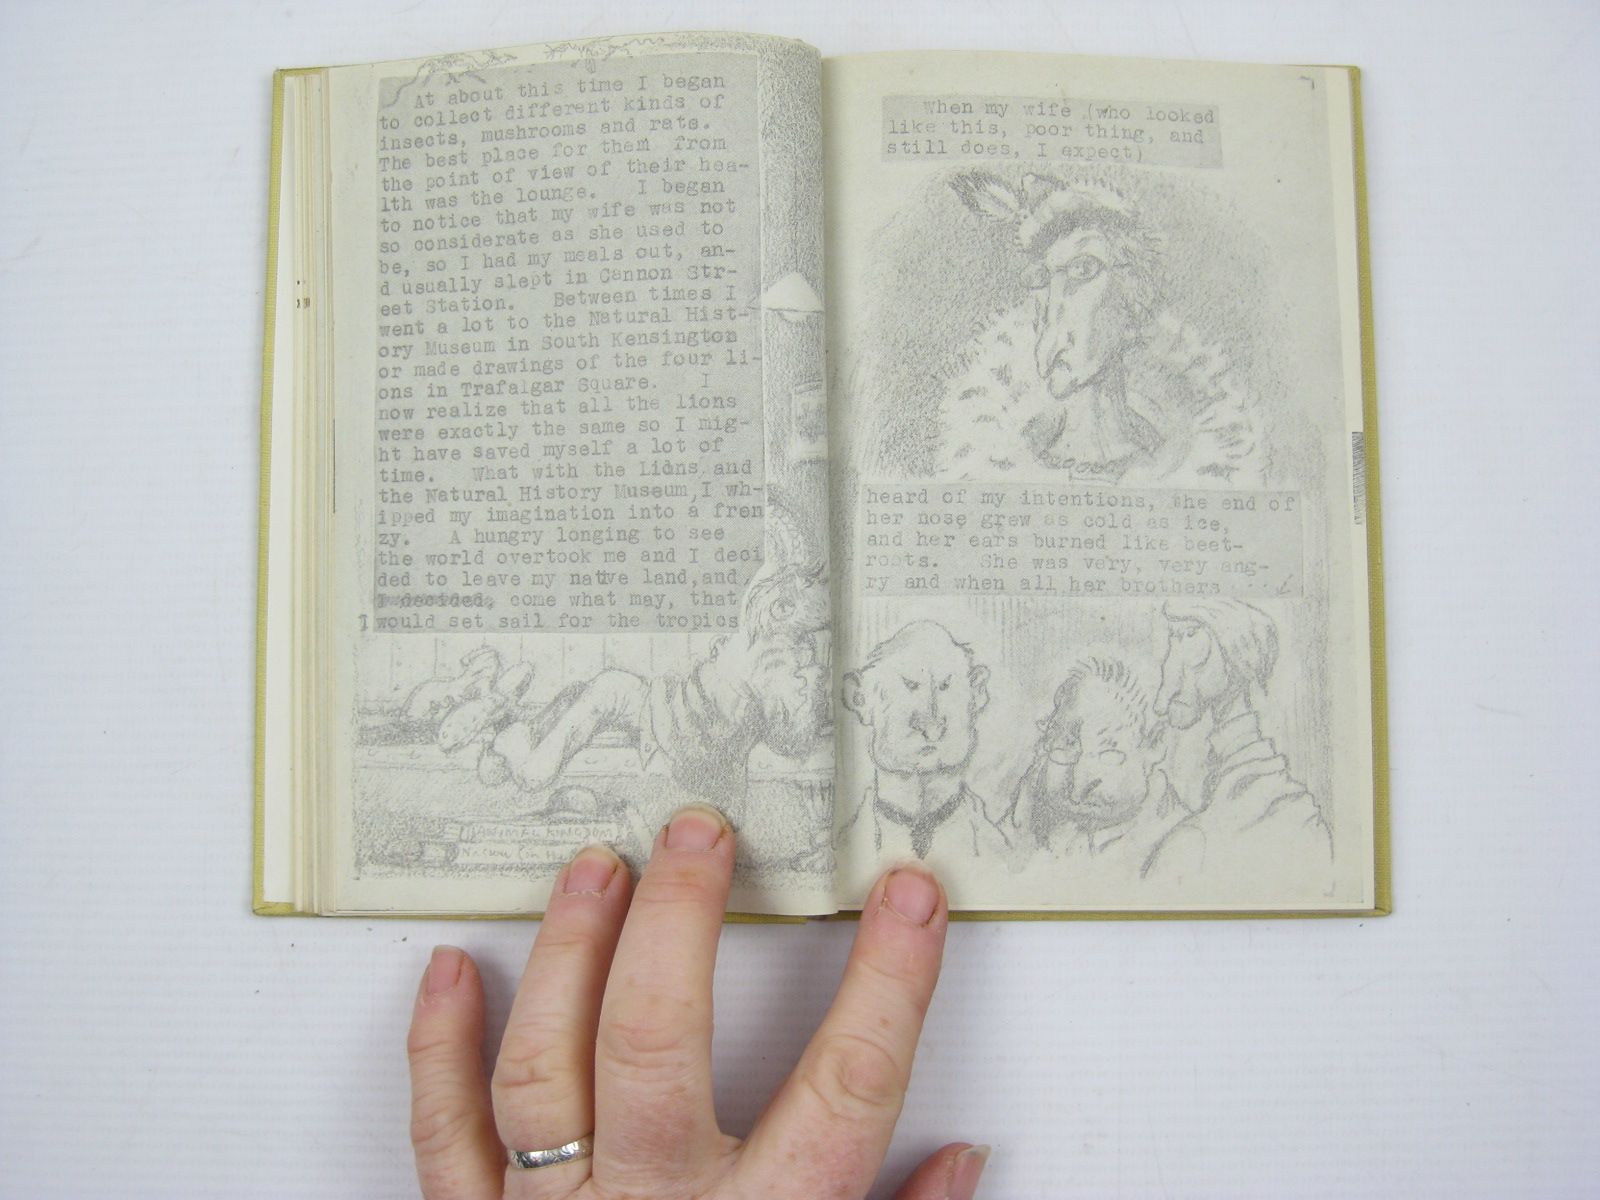 At about this time I began
to collect different kinds of
insects, mushrooms and rats.
The best place for them from
the point of view of their hea-
lth was the lounge. I began
to notice that my wife was not
so considerate as she used to
be, so I had my meals out, an-
d usually slept in Cannon Str-
eet Station. Between times I
went a lot to the Natural Hist-
ory Museum in South Kensington
or made drawings of the four li-
ons in Trafalgar Square. I
now realize that all the lions
were exactly the same so I mig-
ht have saved myself a lot of
time. What with the Lions and
the Natural History Museum, I wh-
ipped my imagination into a fren
zy. A hungry longing to see
the world overtook me and I deci
ded to leave my native land, and,
I decided, come what may, that
I would set sail for the tropics
ANIMAL KINGDOM
When my wife (who looked
like this, poor thing, and
still does, I expect)
heard of my intentions, the end of
her nose grew as cold as ice,
and her ears burned like beet-
roots. She was very, very ang-
ry and when all her brothers ...